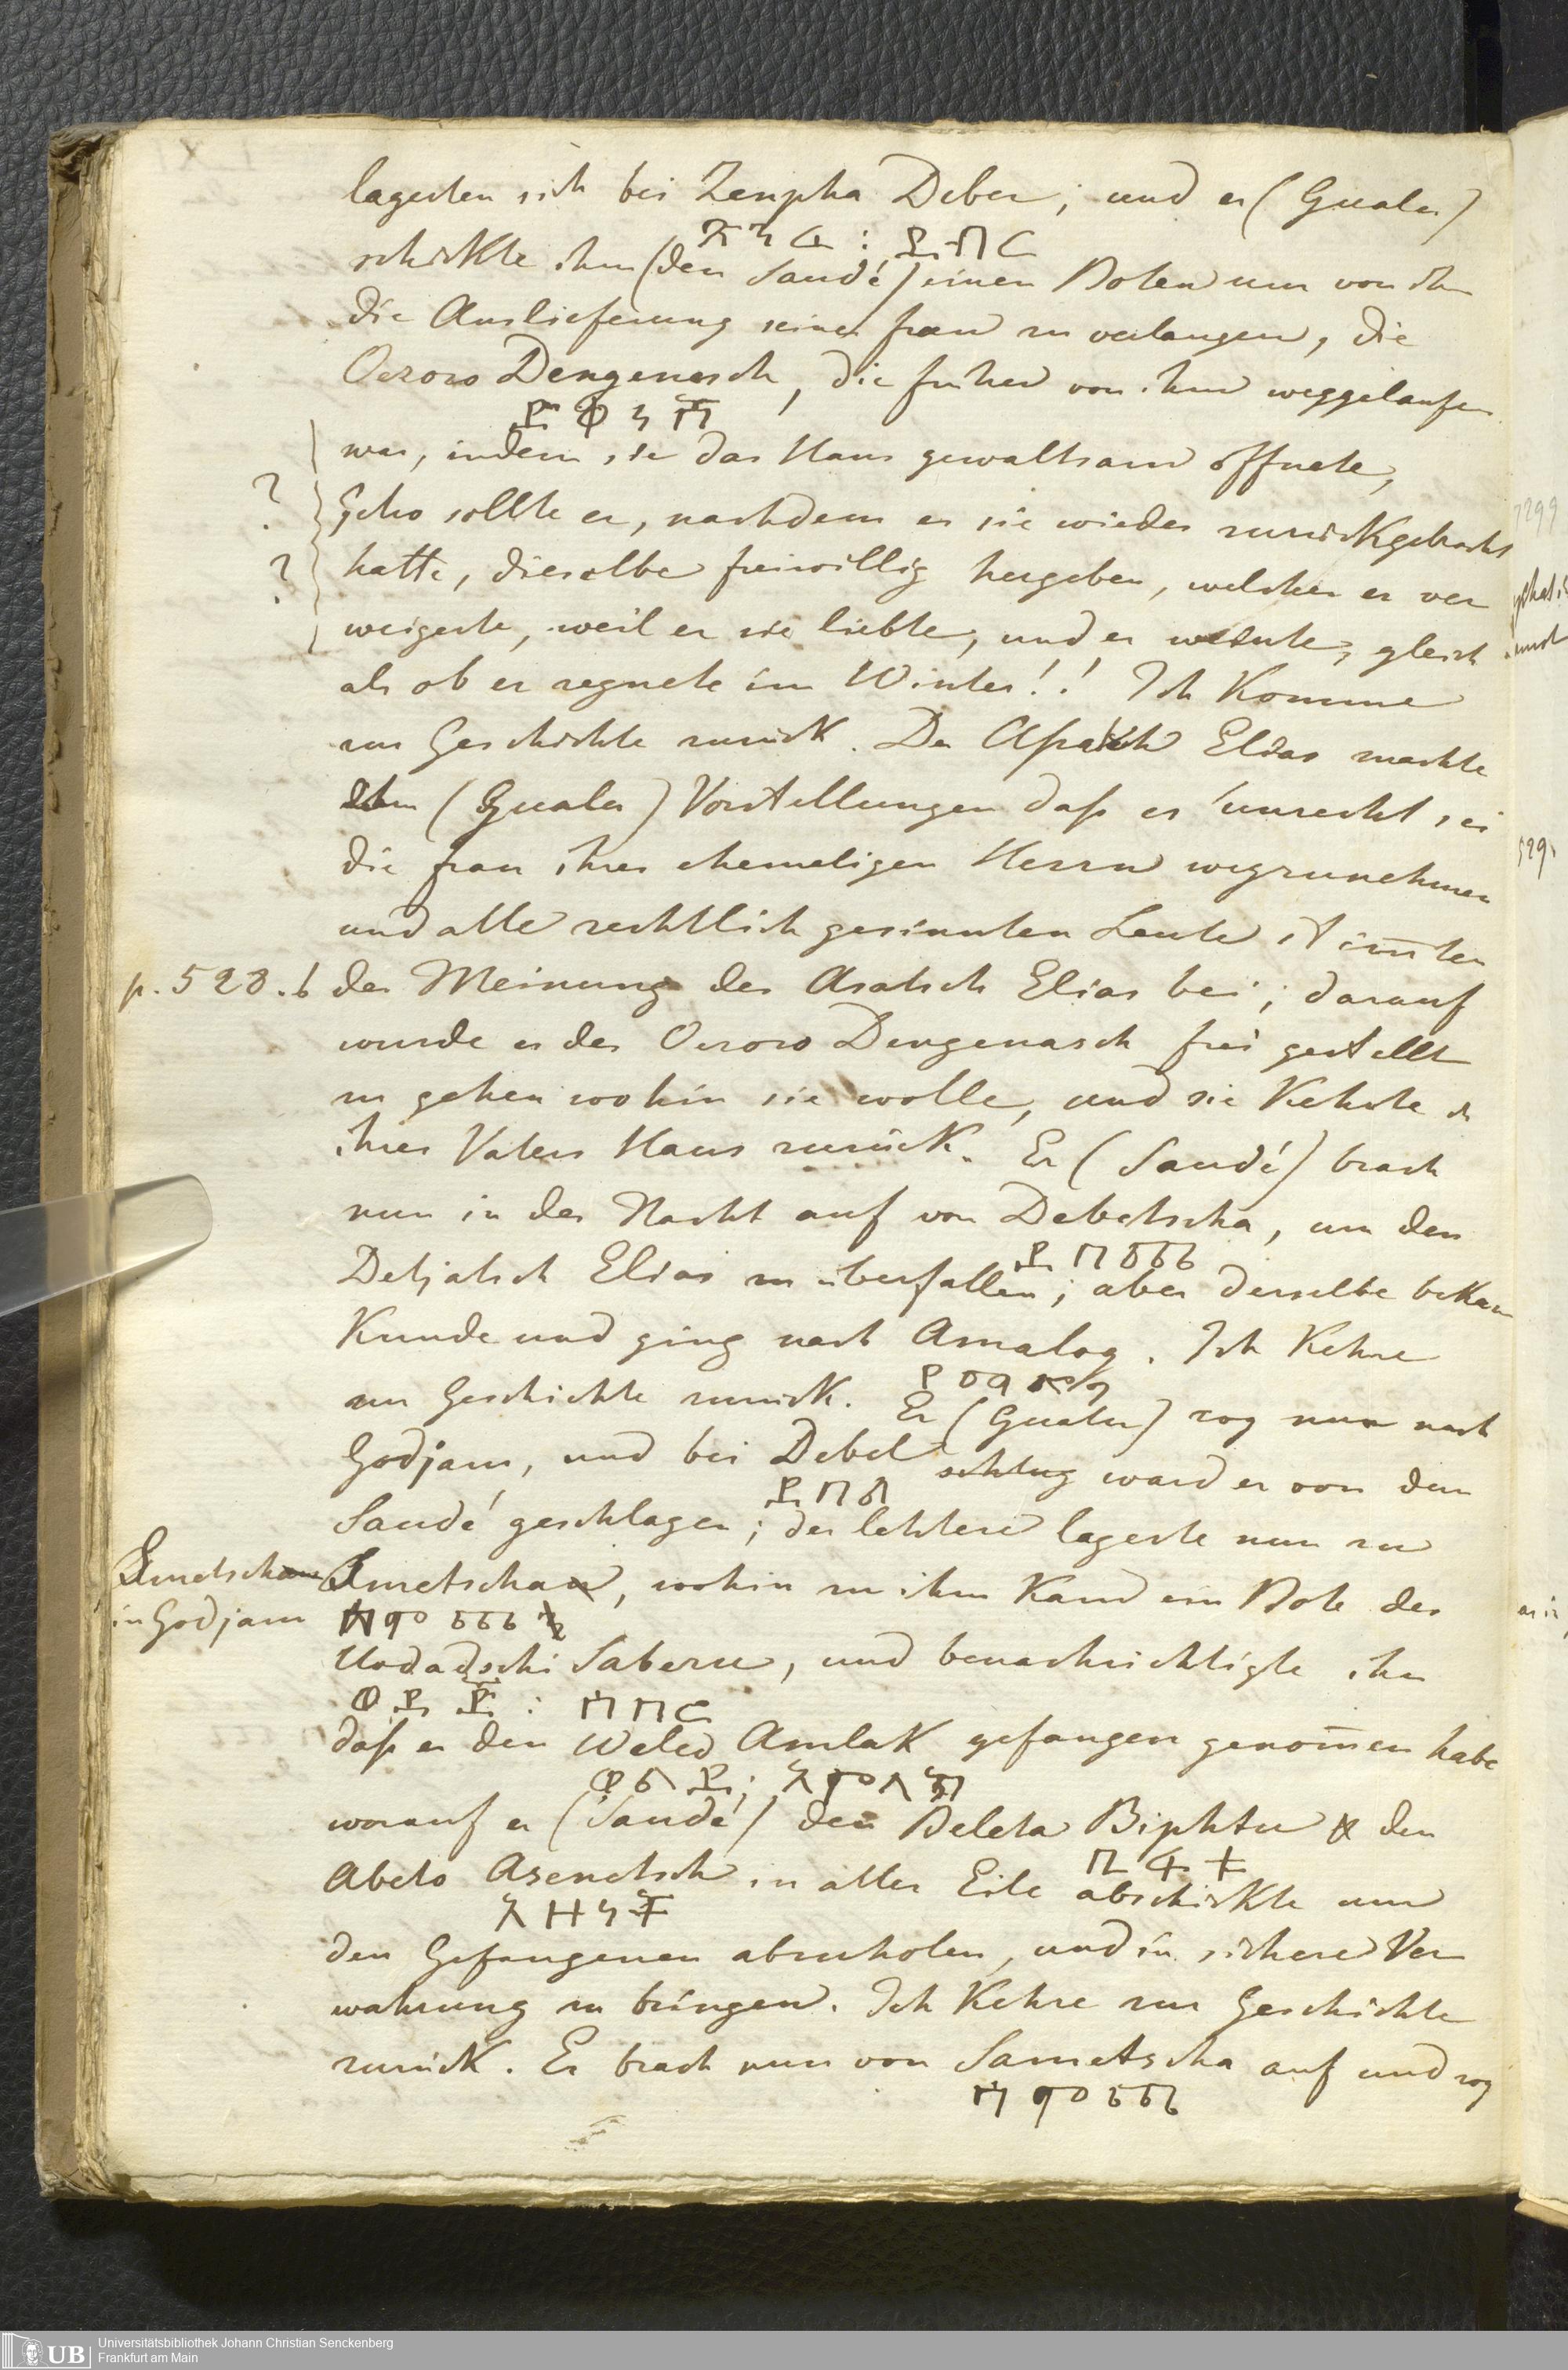 lagerten sich bei Zenpha Deber; und er (Gualu)
ዠንፋ : ደብር
schickte ihm (den Saudé) einen Boten um von ihm
die Auslieferung seiner frau zu verlangen, die
Oezoro Dengenasch, die früher von ihm weggelaufen
war, indem sie das Haus gewaltsam öffnete,
? sollte er, nachdem er sie wieder zurückgebracht
? hatte, dieselbe freiwillig hergeben, welches er ver
weigerte, weil er sie liebte, und er weinte, gleich
als ob er regnete im Winter!! Ich Komme
zur Geschichte zurück. Der Elias machte
ihm (Gualu) Vorstellungen daß es unrecht sei
die frau ihres ehemeligen Herrn wegzunehmen
und alle rechtlich gesinnten Leute stim̄ten
p. 528. b der Meinung des Asatsch Elias bei; darauf
wurde es der Oezoro Dengenasch frei gestellt
zu gehen wohin sie wolle, und sie Kehrte in
ihres Vaters Haus zurück. Er (Saudé) brach
nun in der Nacht auf von Debetscha, um den
Detjatsch Elias zu überfallen; aber derselbe bekam
Kunde und ging nach Amalog. Ich Kehre
zur Geschichte zurück. Er (Gualu) zog nun nach
Godjam, und bei Debel schlug ward er von dem
ደበል
Saudé geschlagen; der letztere lagerte nun zu
Smetscha
in Godjam
Smetschan, wohin zu ihm Kam ein Bote des
Uodadschi Saberu, und benachrichtigte ihn
ወደጅ : ሰበር
daß er den Weled Amlak gefangen genom̄en habe
ወልደ: አምላክ
worauf er (Saudé) den Beleta Biphtu & den
ቢፍቱ
Abeto Asenetsch in aller Eile abschickte um
አዘነች
den Gefangenen abzuholen, und in sichere Ver
wahrung zu bringen. Ich Kehre zur Geschichte
zurück. Er brach nun von Sametscha auf und zog
Universitätsbibliothek Johann Christian Senckenberg
Frankfurt am Main
UB